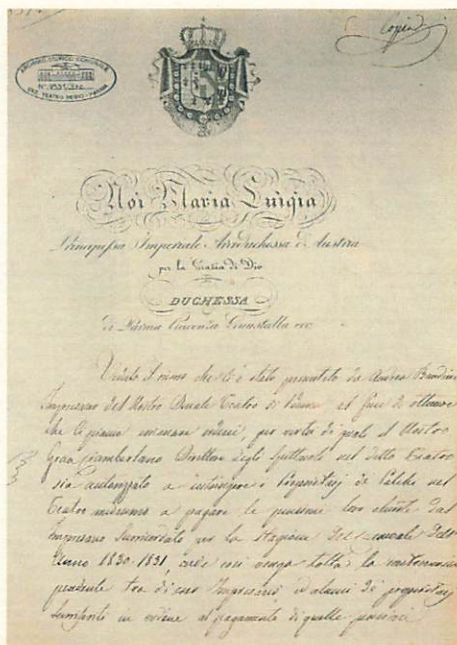 Copia
ARCHIVIO STORICO COMUNALE
TEATRO REGIO - PARMA
Noi Maria Luigia
Principessa Imperiale Arciduchessa d'Austria
per la Grazia di Dio
DUCHESSA
di Parma Piacenza Guastalla ecc.
Veduto il ricorso che ci è stato presentato da Andrea Bandini
Impresario del Nostro Ducale Teatro di Parma al fine di ottenere
che ci piaccia emanare ordini, per virtù di quali il Nostro
Gran Ciamberlano Direttore degli Spettacoli nel detto Teatro
sia autorizzato a costringere i Proprietarj di Palchi nel
Teatro medesimo a pagare le pensioni loro
Impresario Surricordato per la Stagione del Carnevale dell'
Anno 1830-1831, onde così venga tolta la
pendente tra di esso Impresario ed alcuni di proprietarj
in ordine al pagamento di quelle pensioni